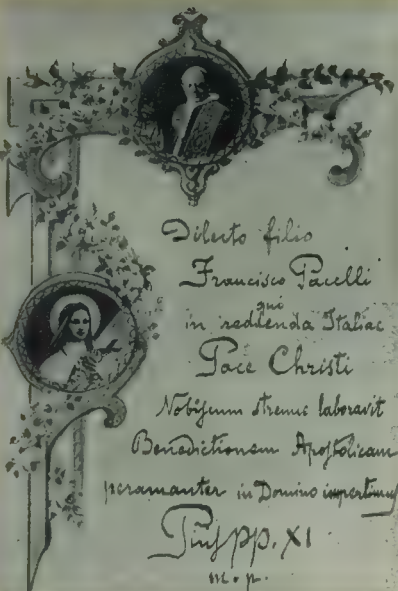 Dilecto filio
Francisco Pacelli
qui
in reddenda Italiae
Pace Christi
Nobiscum strenue laboravit
Benedictionem Apostolicam
peramanter in Domino impertimus
Pius pp. XI
m. p.